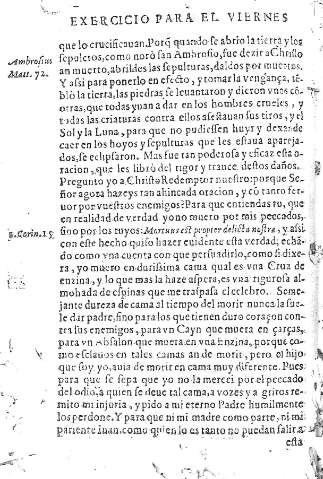 EXERCICIO PARA EL VIERNES
que lo crucificauan. Porq̃ quando se abrio la tierra y los
Ambrosius
sepulcros, como notò san Ambrosio, fue dezir a Christo
Matt. 72.
an muerto, abrildes las sepulturas, daldos por muertos.
Y assi para ponerlo en efecto, y tomar la vengança, tẽ-
blò la tierra, las piedras se leuantaron y dieron vnos cõ
otras, que todas yuan a dar en los hombres crueles, y
todas las criaturas contra ellos asestauan sus tiros, y el
Sol y la Luna, para que no pudiessen huyr y dexande
caer en los hoyos y sepulturas que les estaua apareja-
dos, se eclipsaron. Mas fue tan poderosa y eficaz esta o-
racion, que les librò del rigor y trance destos daños.
Pregunto yo a Christo Redemptor nuestro: porque Se
ñor agora hazeys tan ahincada oracion, y cõ tanto feruor
por vuestros enemigos? Para que entiendas tu, que
en realidad de verdad yo no muero por mis peccados,
2. Corin. 15
sino por los tuyos: Mortuus est propter delicta nostra, y assi
con este hecho quiso hazer euidente esta verdad, echã-
do como vna cuenta con que persuadirlo, como si dixe-
ra, yo muero en durissima cama qual es vna Cruz de
enzina, y lo que mas la haze aspera, es vna rigurosa al-
mohada de espinas que me traspasa el celebro. Seme-
jante dureza de cama al tiempo del morir nunca la sue-
le dar padre, sino para los que tienen duro coraçon con-
tra sus enemigos, para vn Cayn que muera en çarças,
para vn Absalon que muera en vna Enzina, porque co-
mo esclauos en tales camas an de morir, pero el hijo
que soy yo, auia de morir en cama muy diferente. Pues
para que se sepa que yo no la mereci por el peccado
del odio, a quien se deue tal cama, a vozes y a gritos re-
mito mi injuria, y pido a mi eterno Padre humilmente
los perdone. Y para que ni mi madre como parte, ni mi
pariente Iuan, como quien lo es tanto no puedan salir a
esta